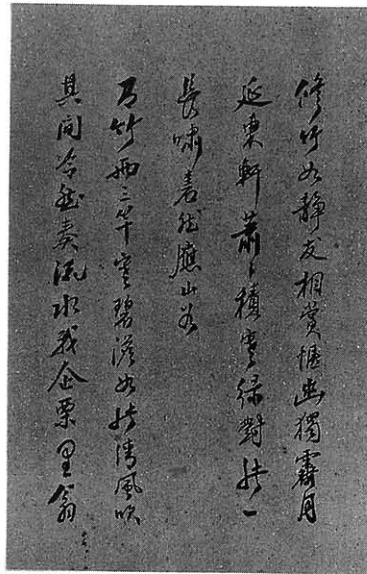 修竹如靜友相賞愜幽獨霽月
延東軒蕭〻積寒綠對此一
長嘯砉然應山谷
有竹兩三竿寒碧澹如此清風吹
其間泠然奏流水我企栗里翁